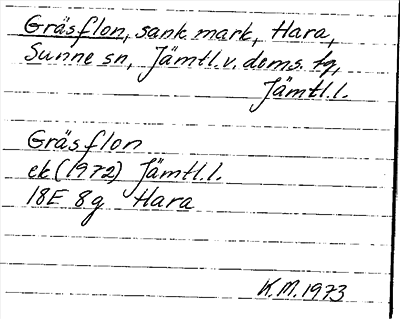 Gräsflon, sank mark, Hara,
Sunne sn, Jämtl.v. doms. tg,
Jämtl.l.
Gräsflon
ek (1972) Jämtl.l.
18E 8g Hara
K.M. 1973